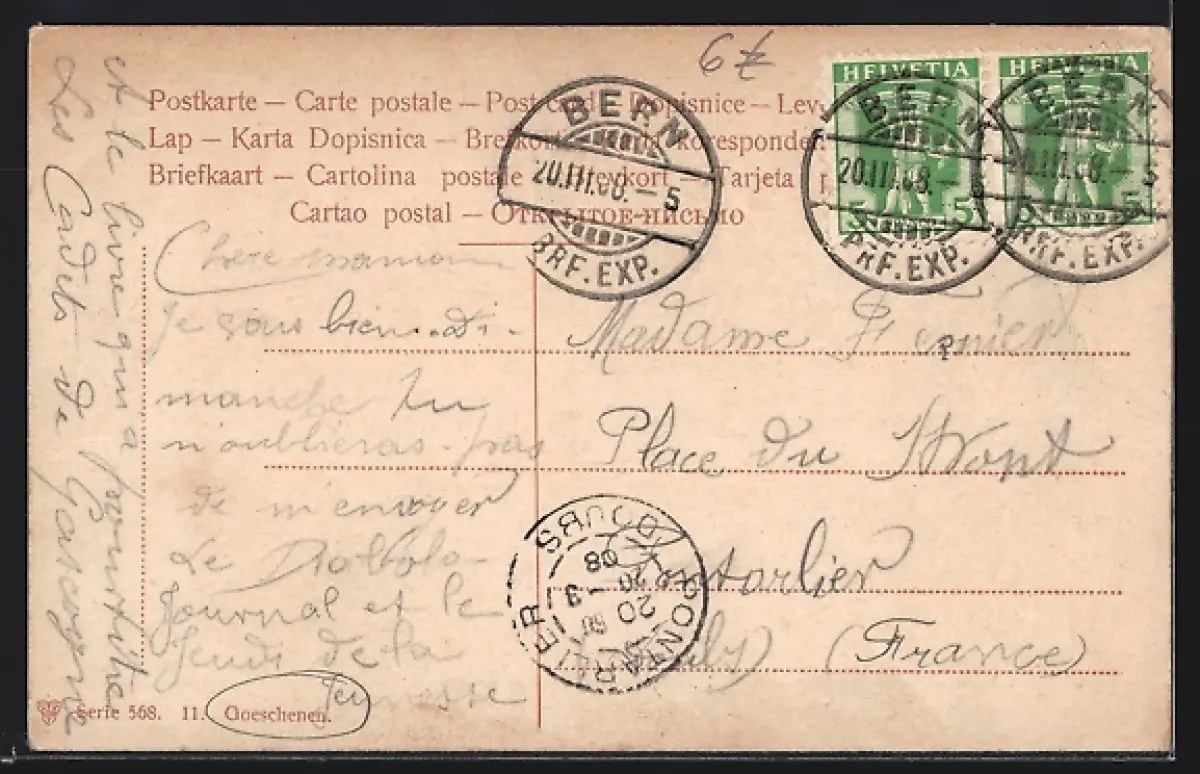 6
HELVETIA
HELVETIA
5 5
5 5
Postkarte — Carte postale — Post card — Dopisnice — Lev
Lap — Karta Dopisnica — koresponden
Briefkaart — Cartolina postale — Brevkort — Tarjeta p
Cartao postal — Открытое письмо
BERN
20.III.08.—5
BRF. EXP.
BERN
20.III.08.—
BRF. EXP.
BERN
20.III.08.—5
BRF. EXP.
Chère maman
Je vous bien. di-
manche tu
n'oublieras-pas
de m'envoyer
Le Diabolo-
Journal et le
Jeudi de la
Jeunesse
et le livre qui a pour titre
Les Cadets de Gascogne
Madame
Place du
Pontarlier
(France)
PONTARLIER DOUBS
20 -3
08
Serie 568. 11. Goeschenen.